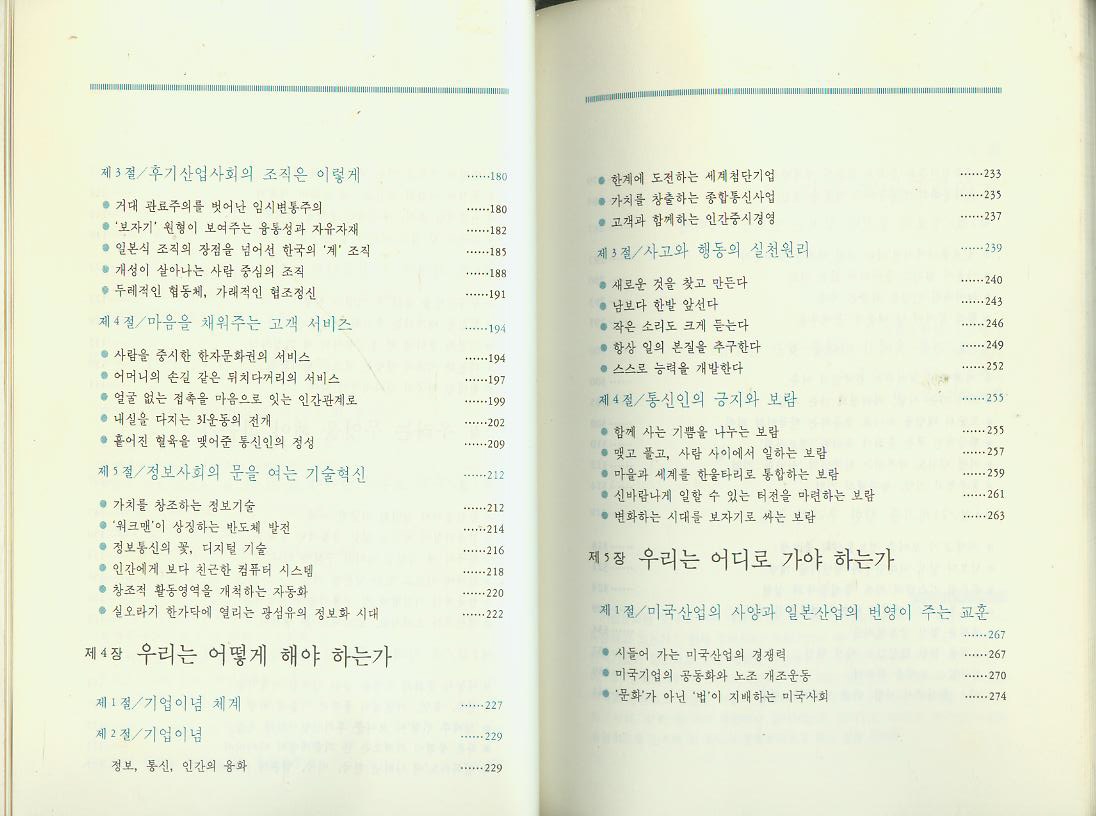 제3절/후기산업사회의 조직은 이렇게 ······180
● 거대 관료주의를 벗어난 임시변통주의 ······180
● ‘보자기’ 원형이 보여주는 융통성과 자유자재 ······182
● 일본식 조직의 장점을 넘어선 한국의 ‘계’ 조직 ······185
● 개성이 살아나는 사람 중심의 조직 ······188
● 두레적인 협동체, 가래적인 협조정신 ······191
제4절/마음을 채워주는 고객 서비스 ······194
● 사람을 중시한 한자문화권의 서비스 ······194
● 어머니의 손길 같은 뒤치다꺼리의 서비스 ······197
● 얼굴 없는 접촉을 마음으로 잇는 인간관계로 ······199
● 내실을 다지는 3I운동의 전개 ······202
● 흩어진 혈육을 맺어준 통신인의 정성 ······209
제5절/정보사회의 문을 여는 기술혁신 ······212
● 가치를 창조하는 정보기술 ······212
● ‘워크맨’이 상징하는 반도체 발전 ······214
● 정보통신의 꽃, 디지털 기술 ······216
● 인간에게 보다 친근한 컴퓨터 시스템 ······218
● 창조적 활동영역을 개척하는 자동화 ······220
● 실오라기 한가닥에 열리는 광섬유의 정보화 시대 ······222
제4장 우리는 어떻게 해야 하는가
제1절/기업이념 체계 ······227
제2절/기업이념 ······229
정보, 통신, 인간의 융화 ······229
● 한계에 도전하는 세계첨단기업 ······233
● 가치를 창출하는 종합통신사업 ······235
● 고객과 함께하는 인간중시경영 ······237
제3절/사고와 행동의 실천원리 ······239
● 새로운 것을 찾고 만든다 ······240
● 남보다 한발 앞선다 ······243
● 작은 소리도 크게 듣는다 ······246
● 항상 일의 본질을 추구한다 ······249
● 스스로 능력을 개발한다 ······252
제4절/통신인의 긍지와 보람 ······255
● 함께 사는 기쁨을 나누는 보람 ······255
● 맺고 풀고, 사람 사이에서 일하는 보람 ······257
● 마을과 세계를 한울타리로 통합하는 보람 ······259
● 신바람나게 일할 수 있는 터전을 마련하는 보람 ······261
● 변화하는 시대를 보자기로 싸는 보람 ······263
제5장 우리는 어디로 가야 하는가
제1절/미국산업의 사양과 일본산업의 번영이 주는 교훈
······267
● 시들어 가는 미국산업의 경쟁력 ······267
● 미국기업의 공동화와 노조 개조운동 ······270
● ‘문화’가 아닌 ‘법’이 지배하는 미국사회 ······274